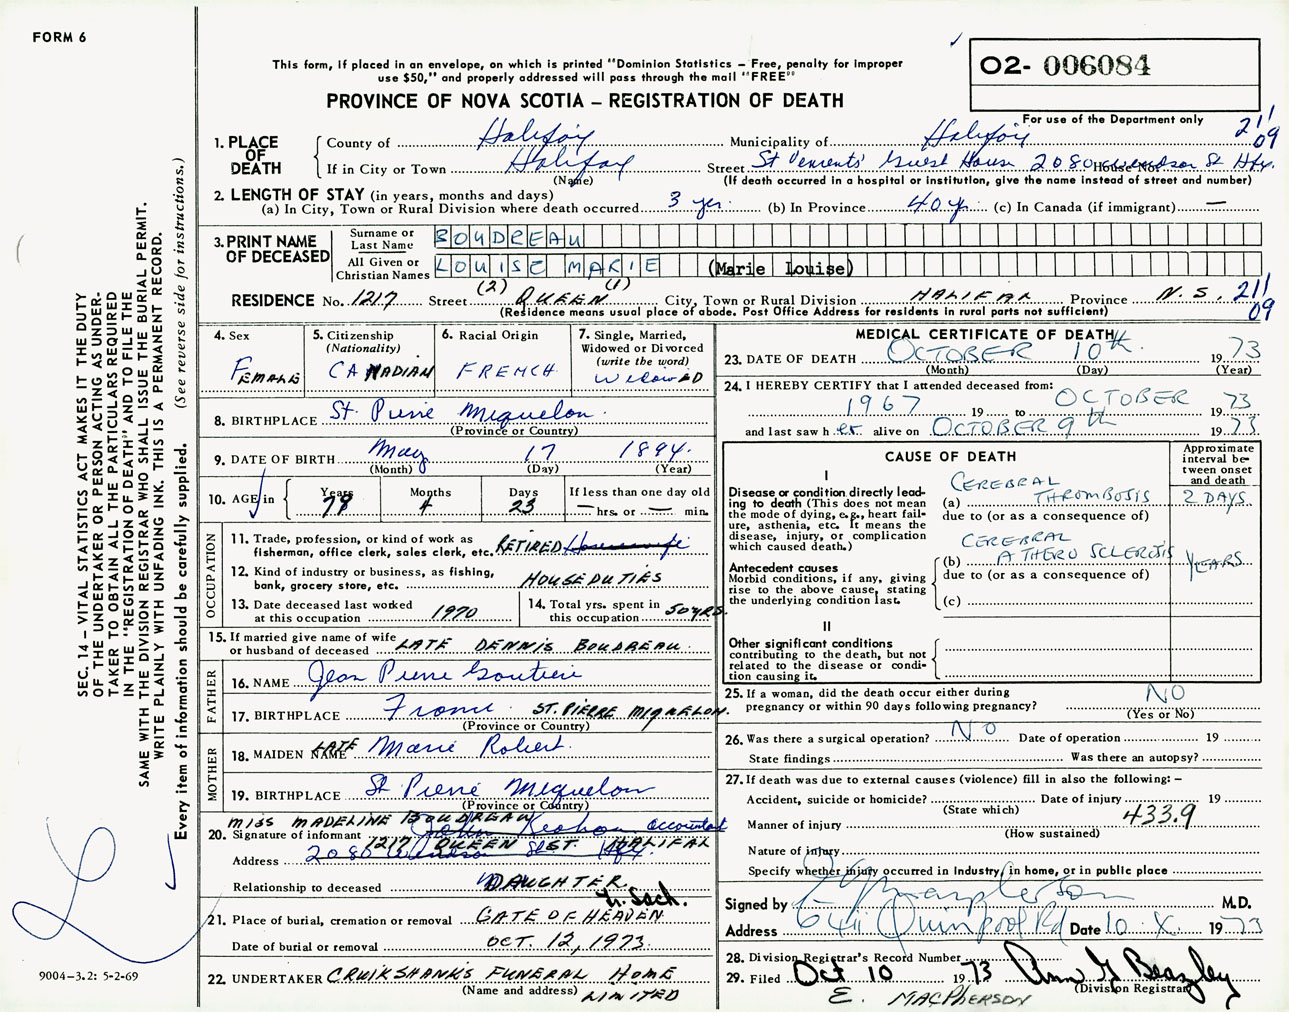 FORM 6
This form, if placed in an envelope, on which is printed "Dominion Statistics – Free, penalty for improper
use $50," and properly addressed will pass through the mail "FREE"
O2- 006084
PROVINCE OF NOVA SCOTIA – REGISTRATION OF DEATH
For use of the Department only
211
09
1. PLACE OF DEATH
County of Halifax Municipality of Halifax
If in City or Town Halifax Street St Vincents' Guest House 2080 Windsor St Hfx.
(Name) (If death occurred in a hospital or institution, give the name instead of street and number)
2. LENGTH OF STAY (in years, months and days)
(a) In City, Town or Rural Division where death occurred 3 yrs. (b) In Province 40 yr. (c) In Canada (if immigrant) —
3. PRINT NAME OF DECEASED
Surname or Last Name BOUDREAU
All Given or Christian Names LOUISE MARIE (Marie Louise)
(2) (1)
RESIDENCE No. 1217 Street QUEEN City, Town or Rural Division HALIFAX Province N.S. 211
09
(Residence means usual place of abode. Post Office Address for residents in rural parts not sufficient)
4. Sex
FEMALE
5. Citizenship
(Nationality)
CANADIAN
6. Racial Origin
FRENCH
7. Single, Married,
Widowed or Divorced
(write the word)
WIDOWED
8. BIRTHPLACE St. Pierre Miquelon.
(Province or Country)
9. DATE OF BIRTH May 17 1894
(Month) (Day) (Year)
10. AGE in
Years Months Days If less than one day old
79 4 23 — hrs. or — min.
OCCUPATION
11. Trade, profession, or kind of work as
fisherman, office clerk, sales clerk, etc. RETIRED Housewife
12. Kind of industry or business, as fishing,
bank, grocery store, etc. HOUSE DUTIES
13. Date deceased last worked
at this occupation 1970
14. Total yrs. spent in
this occupation 50 YRS.
15. If married give name of wife
or husband of deceased LATE DENNIS BOUDREAU
FATHER
16. NAME Jean Pierre Goutiere
17. BIRTHPLACE France. ST. PIERRE MIQUELON.
(Province or Country)
MOTHER
18. MAIDEN NAME LATE Marie Robert.
19. BIRTHPLACE St Pierre Miquelon
(Province or Country)
MISS MADELINE BOUDREAU
20. Signature of informant John accountant
1217 QUEEN ST. HALIFAX
Address 2080 Windsor St. Hfx.
Relationship to deceased DAUGHTER
L. Sack.
21. Place of burial, cremation or removal GATE OF HEAVEN
Date of burial or removal OCT. 12, 1973.
22. UNDERTAKER CRUIKSHANKS FUNERAL HOME
(Name and address) LIMITED
MEDICAL CERTIFICATE OF DEATH
23. DATE OF DEATH OCTOBER 10th 1973
(Month) (Day) (Year)
24. I HEREBY CERTIFY that I attended deceased from:
1967 19 to OCTOBER 1973
and last saw her alive on OCTOBER 9th 1973
CAUSE OF DEATH
Approximate
interval be-
tween onset
and death
I
Disease or condition directly lead-
ing to death (This does not mean
the mode of dying, e.g., heart fail-
ure, asthenia, etc. It means the
disease, injury, or complication
which caused death.)
CEREBRAL
(a) THROMBOSIS 2 DAYS.
due to (or as a consequence of)
CEREBRAL
(b) ATHEROSCLEROSIS YEARS
due to (or as a consequence of)
Antecedent causes
Morbid conditions, if any, giving
rise to the above cause, stating
the underlying condition last.
(c)
II
Other significant conditions
contributing to the death, but not
related to the disease or condi-
tion causing it.
25. If a woman, did the death occur either during
pregnancy or within 90 days following pregnancy? NO
(Yes or No)
26. Was there a surgical operation? NO Date of operation 19
State findings Was there an autopsy?
27. If death was due to external causes (violence) fill in also the following: –
Accident, suicide or homicide? Date of injury 19
(State which)
Manner of injury 433.9
(How sustained)
Nature of injury
Specify whether injury occurred in Industry, in home, or in public place
Signed by M.D.
Address 6411 Quinpool Rd Date 10 X. 1973
28. Division Registrar's Record Number
29. Filed Oct 10 1973 Ann G Beazley
(Division Registrar)
E. MACPHERSON
SEC. 14 – VITAL STATISTICS ACT MAKES IT THE DUTY
OF THE UNDERTAKER OR PERSON ACTING AS UNDER-
TAKER TO OBTAIN ALL THE PARTICULARS REQUIRED
IN THE "REGISTRATION OF DEATH" AND TO FILE THE
SAME WITH THE DIVISION REGISTRAR WHO SHALL ISSUE THE BURIAL PERMIT.
WRITE PLAINLY WITH UNFADING INK. THIS IS A PERMANENT RECORD.
Every item of information should be carefully supplied. (See reverse side for instructions.)
9004–3.2: 5-2-69